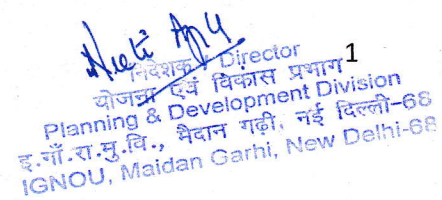 1
निदेशक / Director
योजना एवं विकास प्रभाग
Planning & Development Division
इ.गाँ.रा.मु.वि., मैदान गढ़ी, नई दिल्ली-68
IGNOU, Maidan Garhi, New Delhi-68